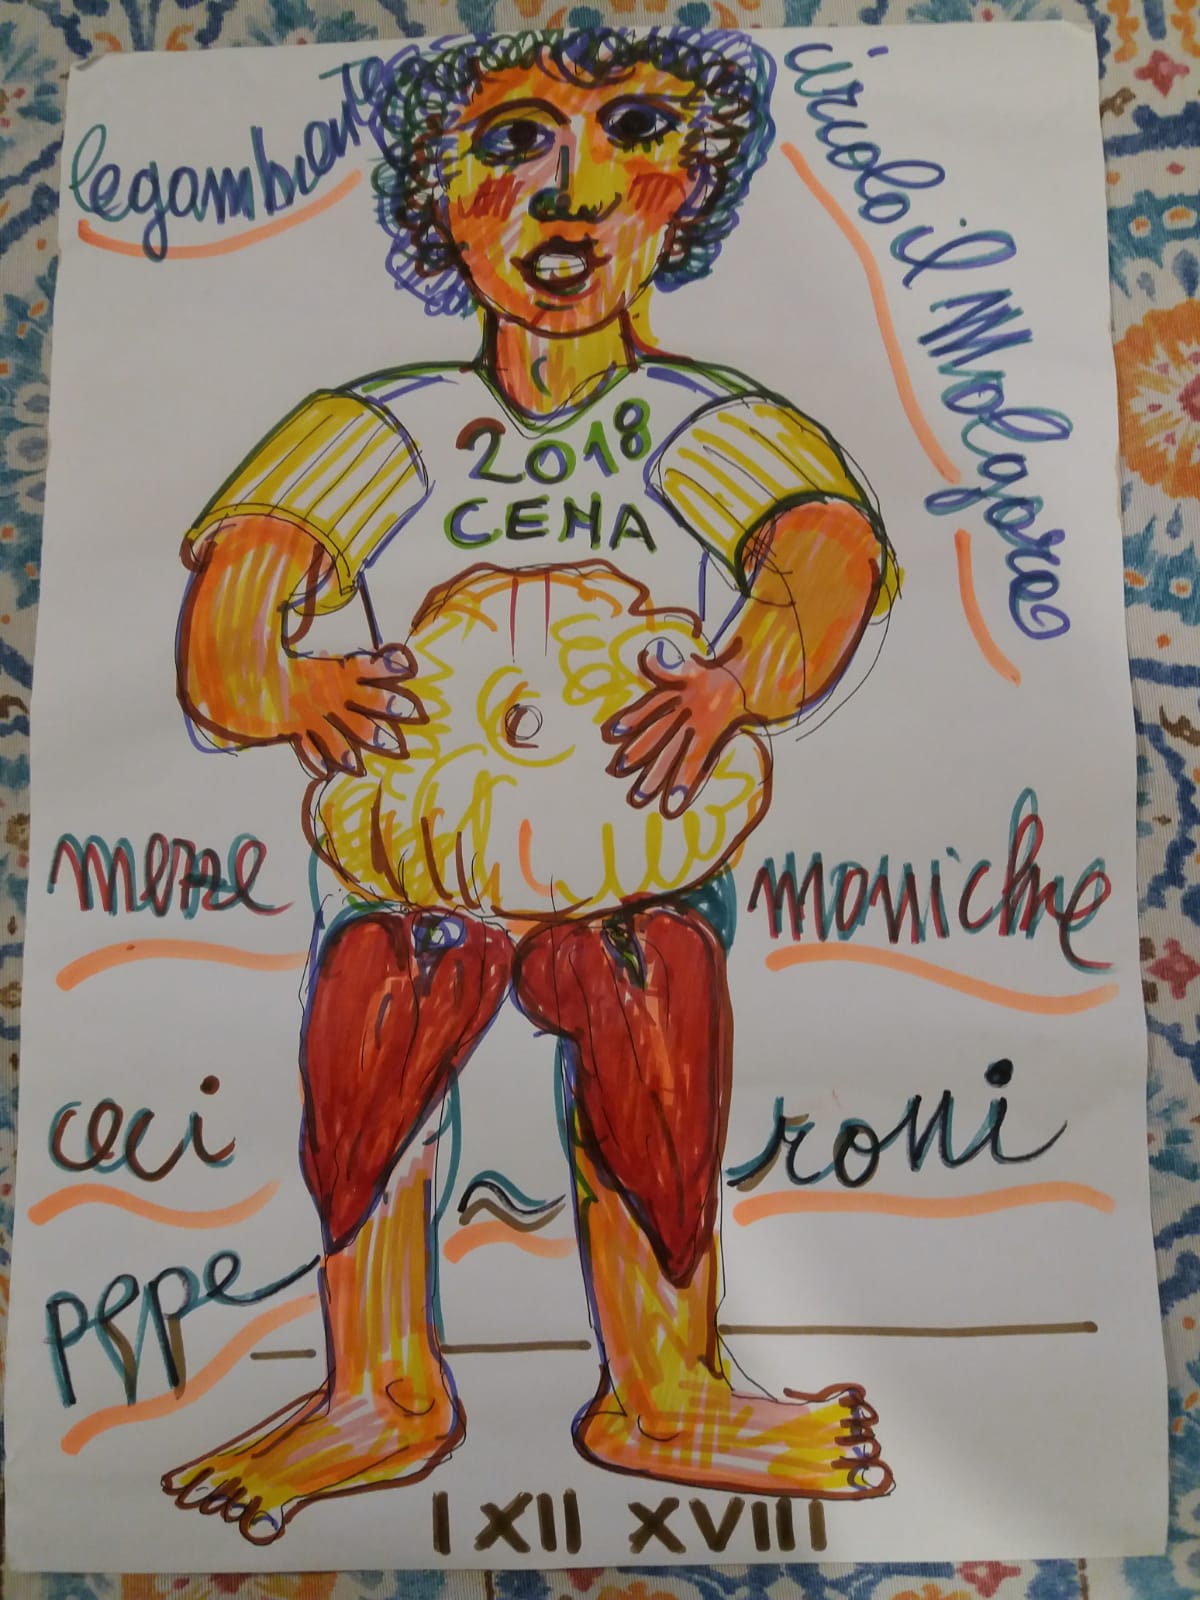 legambiente
circolo il Molgora
2018
CENA
mezze
moniche
ceci
~
roni
pepe
I XII XVIII